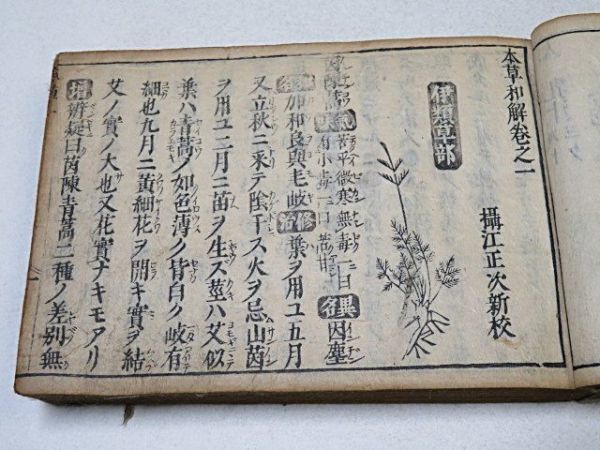 本草和解卷之一
攝江正次新校
隰類草部
茵蔯蒿 氣味 苦平微寒無毒一曰
有小毒一曰苦甘 異名 因塵
和名 加和良與毛岐 修治 葉ヲ用ユ五月
又立秋ニ采テ陰干ス火ヲ忌山茵
ヲ用ユ二月ニ苗ヲ生ズ莖ハ艾似
葉ハ青蒿ノ如色薄ク背白ク岐有
細也九月ニ黃細花ヲ開キ實ヲ結
艾ノ實ノ大也又花實ナキモアリ
辨疑曰茵陳青蒿二種ノ差別無